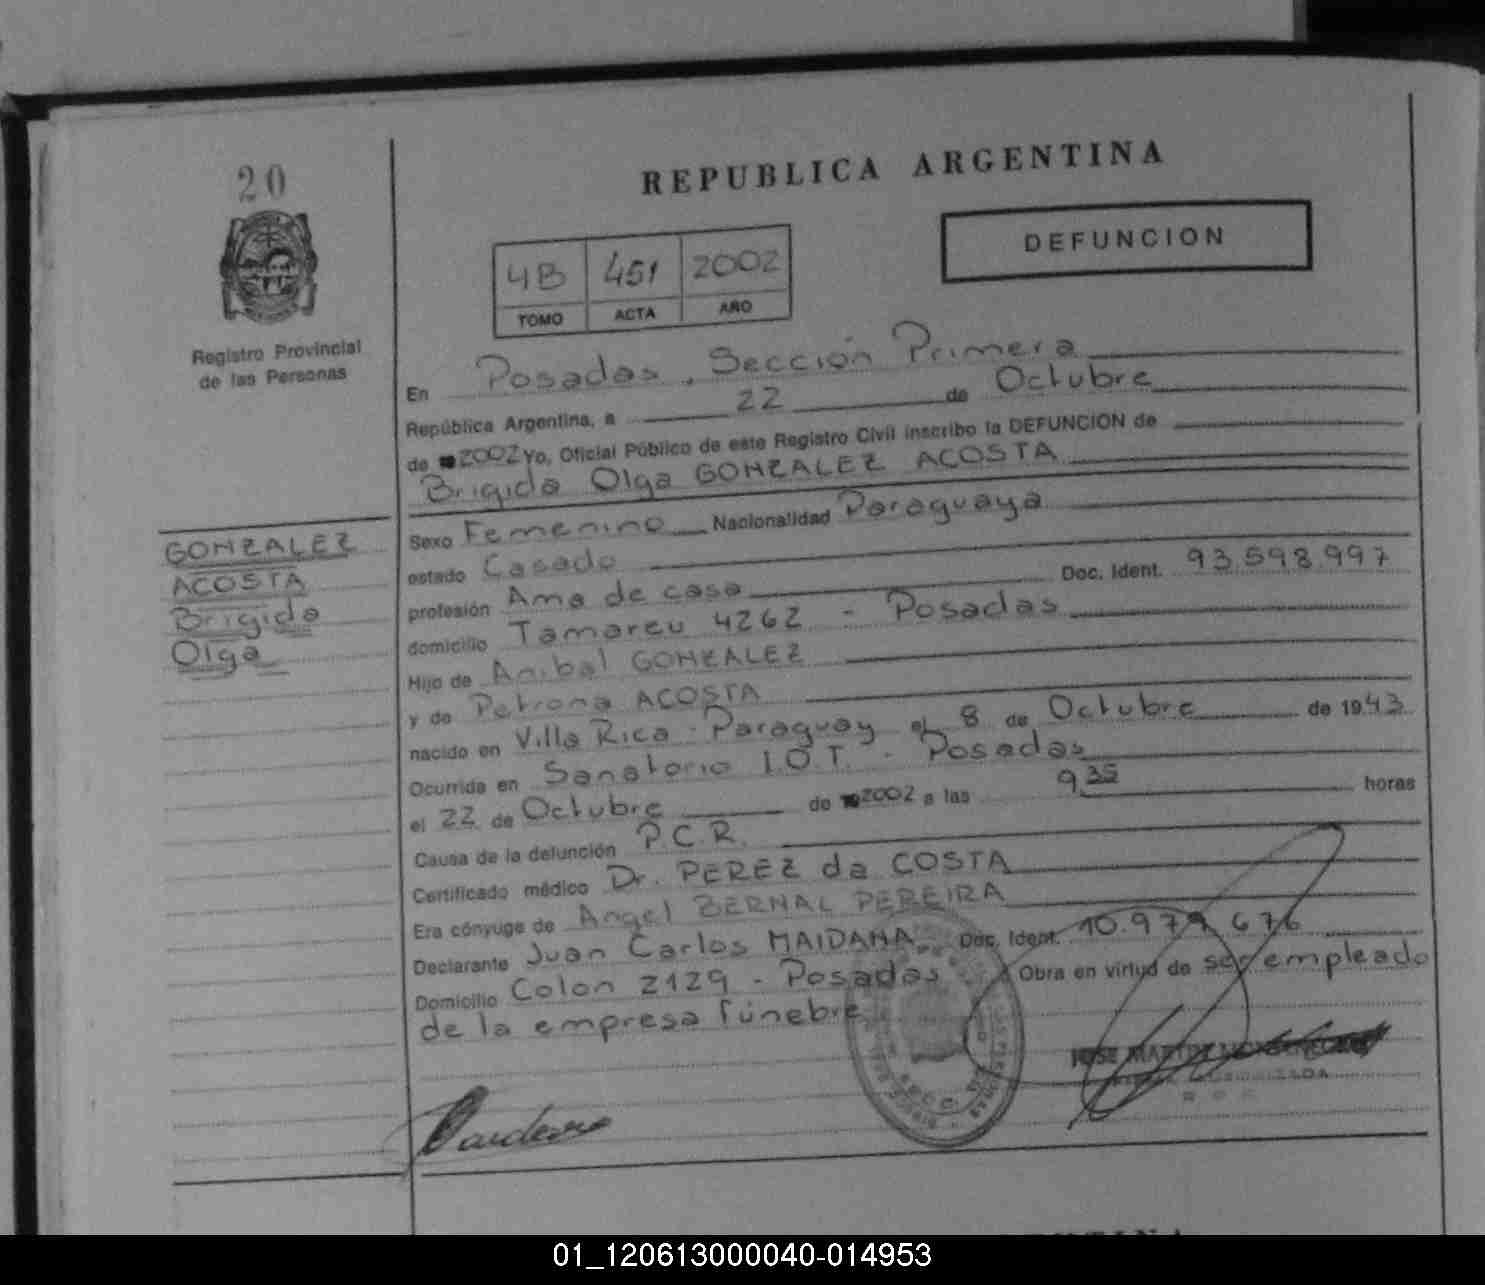 20
Registro Provincial
de las Personas
REPUBLICA ARGENTINA
DEFUNCION
4B 451 2002
TOMO ACTA AÑO
En Posadas, Sección Primera
República Argentina, a 22 de Octubre
de 2002 Yo, Oficial Público de este Registro Civil inscribo la DEFUNCION de
Brigida Olga GONZALEZ ACOSTA
GONZALEZ
ACOSTA
Brigida
Olga
Sexo Femenino Nacionalidad Paraguaya
estado Casado
profesión Ama de casa Doc. Ident. 93.598.997
domicilio Tamareu 4262 - Posadas
Hijo de Anibal GONZALEZ
y de Petrona ACOSTA
nacido en Villa Rica - Paraguay el 8 de Octubre de 1943
Ocurrida en Sanatorio I.O.T. - Posadas
el 22 de Octubre de 2002 a las 9,35 horas
Causa de la defunción P.C.R.
Certificado médico Dr. PEREZ da COSTA
Era cónyuge de Angel BERNAL PEREIRA
Declarante Juan Carlos MAIDANA Doc. Ident. 10.979.676
Domicilio Colon 2129 - Posadas Obra en virtud de ser empleado
de la empresa fúnebre
JOSE
01_120613000040-014953